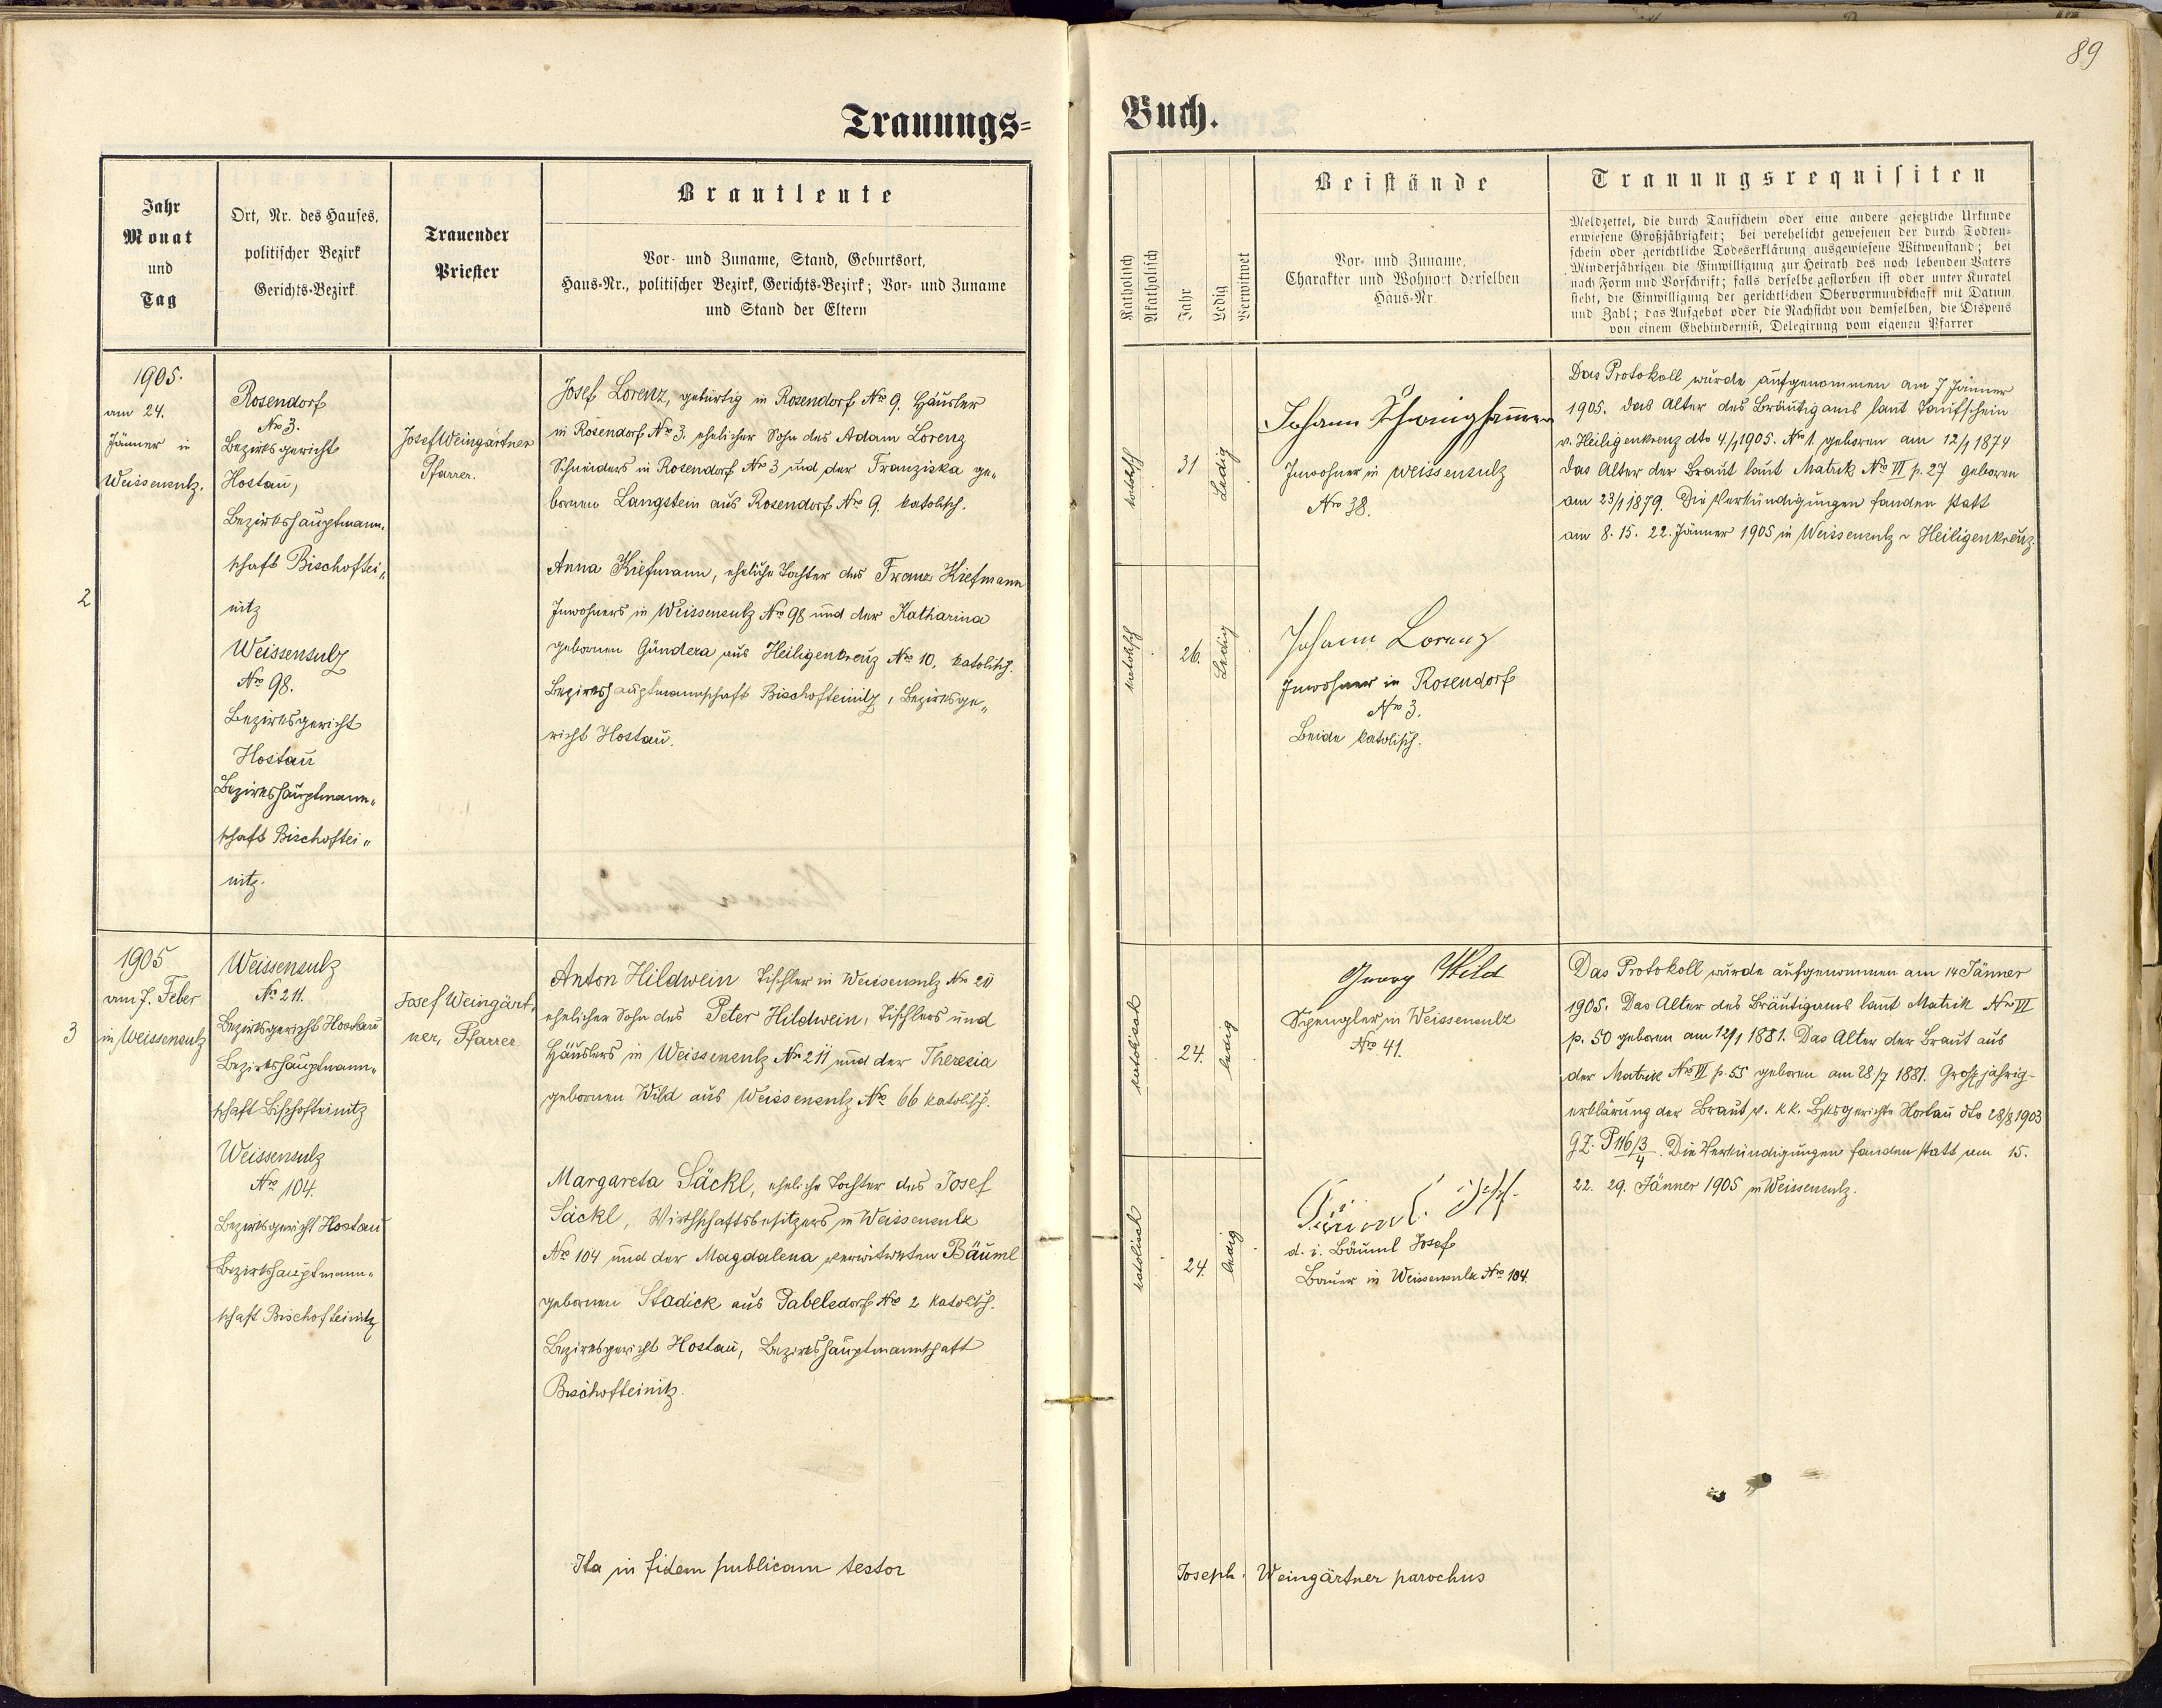 89
Trauungs=
Buch.
Jahr
Monat
und
Tag
Ort, Nr. des Hauses,
politischer Bezirk
Gerichts-Bezirk
Trauender
Priester
Brautleute
Vor- und Zuname, Stand, Geburtsort,
Haus-Nr., politischer Bezirk, Gerichts-Bezirk; Vor- und Zuname
und Stand der Eltern
Katholisch
Akatholisch
Jahr
Ledig
Verwitwet
Beistände
Vor- und Zuname,
Charakter und Wohnort derselben
Haus-Nr.
Trauungsrequisiten
Meldzettel, die durch Taufschein oder eine andere gesetzliche Urkunde
erwiesene Großjährigkeit; bei verehelicht gewesenen der durch Todten-
schein oder gerichtliche Todeserklärung ausgewiesene Witwenstand; bei
Minderjährigen die Einwilligung zur Heirath des noch lebenden Vaters
nach Form und Vorschrift; falls derselbe gestorben ist oder unter Kuratel
steht, die Einwilligung der gerichtlichen Obervormundschaft mit Datum
und Zahl; das Aufgebot oder die Nachsicht von demselben, die Dispens
von einem Ehehinderniß, Delegirung vom eigenen Pfarrer
2
1905.
am 24.
Jänner in
Weissensulz.
Rosendorf
No 3.
Bezirksgericht
Hostau,
Bezirkshauptmann„
schaft Bischoftei„
nitz
Weissensulz
No 98.
Bezirksgericht
Hostau
Bezirkshauptmann„
schaft Bischoftei„
nitz.
Josef Weingärtner
Pfarrer.
Josef Lorenz, gebürtig in Rosendorf No 9. Häusler
in Rosendorf No 3. ehelicher Sohn des Adam Lorenz
Schneiders in Rosendorf No 3 und der Franziska ge„
bornen Langstein aus Rosendorf No 9. katolisch.
Anna Kiefmann, eheliche Tochter des Franz Kiefmann
Inwohners in Weissensulz No 98 und der Katharina
gebornen Gündera, aus Heiligenkreuz No 10, katolisch.
Bezirkshauptmannschaft Bischofteinitz, Bezirksge„
richt Hostau.
katolisch
31
Ledig
katolisch
26.
Ledig
Johann Schwieghammer
Inwohner in Weissensulz
No 38.
Johann Lorenz
Inwohner in Rosendorf
No 3.
Beide katolisch.
Das Protokoll wurde aufgenommen am 7 Jänner
1905. das Alter des Bräutigams laut Taufschein
v. Heiligenkreuz dto 4./1 1905. No 1. geboren am 12/1 1874
das Alter der Braut laut Matrik No VI p. 27 geboren
am 23/1 1879. Die Verkündigungen fanden statt
am 8. 15. 22. Jänner 1905 in Weissensulz u Heiligenkreuz.
3
1905
am 7. Feber
in Weissensulz
Weissensulz
No 211.
Bezirksgericht Hostau
Bezirkshauptmann„
schaft Bischofteinitz
Weissensulz
No 104.
Bezirksgericht Hostau
Bezirkshauptmann„
schaft Bischofteinitz
Josef Weingärt„
ner, Pfarrer.
Anton Hildwein Tischler in Weissensulz No 211
ehelicher Sohn des Peter Hildwein, Tischlers und
Häuslers in Weissensulz No 211 und der Theresia
gebornen Wild aus Weissensulz No 66 katolisch.
Margareta Säckl, eheliche Tochter des Josef
Säckl, Wirthschaftsbesitzers in Weissensulz
No 104 und der Magdalena verwitweten Bäuml
gebornen Stadick aus Tabelsdorf No 2 katolisch.
Bezirksgericht Hostau, Bezirkshauptmannschaft
Bischofteinitz.
katolisch
24.
ledig
katolisch
24.
ledig
Georg Wild
Spengler in Weissensulz
No 41.
Bäuml Josef
d. i. Bäuml Josef
Bauer in Weissensulz No 104.
Das Protokoll wurde aufgenommen am 14 Jänner
1905. Das Alter des Bräutigams laut Matrik No VI
p. 50 geboren am 12/1 1881. Das Alter der Braut aus
der Matrik No VI p. 55 geboren am 28./7 1881. Großjährig-
erklärung der Braut v. k k. Bzksgerichte Hostau dto 28/8 1903
GZ. P 116/3 4. Die Verkündigungen fanden statt am 15.
22. 29. Jänner 1905 in Weissensulz.
Ita in fidem publicam testor
Joseph Weingärtner parochus